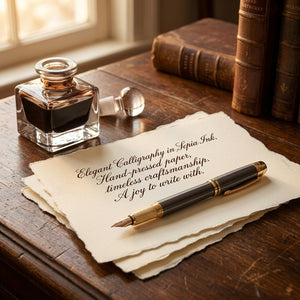 Elegant Calligraphy in Sepia Ink.
Hand-pressed paper,
timeless craftsmanship.
A joy to write with.